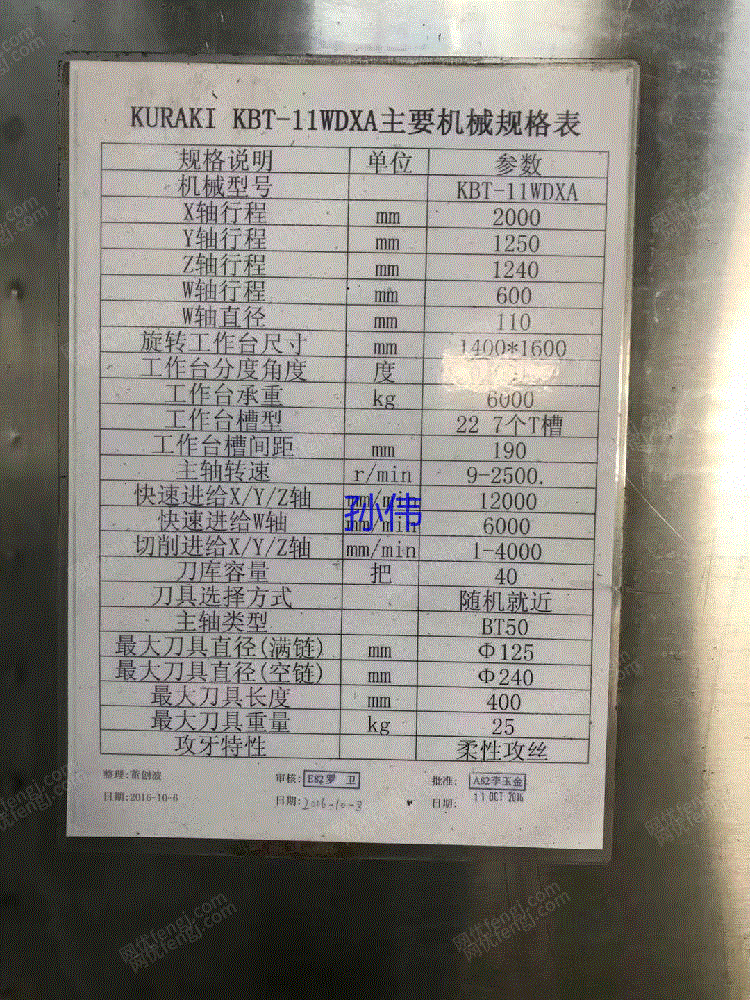 KURAKI KBT-11WDXA主要机械规格表
规格说明 单位 参数
机械型号 KBT-11WDXA
X轴行程 mm 2000
Y轴行程 mm 1250
Z轴行程 mm 1240
W轴行程 mm 600
W轴直径 mm 110
旋转工作台尺寸 mm 1400*1600
工作台分度角度 度
工作台承重 kg 6000
工作台槽型 22 7个T槽
工作台槽间距 mm 190
主轴转速 r/min 9-2500.
快速进给X/Y/Z轴 mm/min 12000
孙伟
快速进给W轴 mm/min 6000
切削进给X/Y/Z轴 mm/min 1-4000
刀库容量 把 40
刀具选择方式 随机就近
主轴类型 BT50
最大刀具直径(满链) mm Φ125
最大刀具直径(空链) mm Φ240
最大刀具长度 mm 400
最大刀具重量 kg 25
攻牙特性 柔性攻丝
整理: 审核: E82罗 卫 批准: A82李玉金
日期:2016-10-6 日期: 2016-10-8 日期: 11 OCT 2016
网优fengj.com
网优fengj.com
网优fengj.com
网优fengj.com